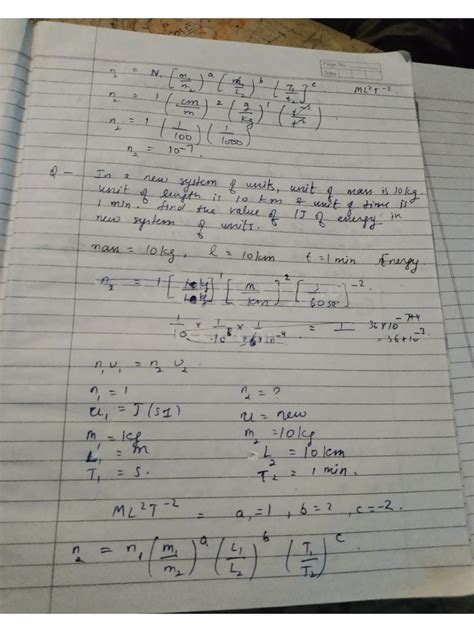 Page No.
Date
n₂ = N₁ [m₁/m₂]^a [m₁/L₂]^b [T₁/t₂]^c ML²T⁻²
n₂ = 1 (cm/m)² (g/kg)¹
n₂ = 1 (1/100) (1/1000)
n₂ = 10⁻⁷
Q - In a new system of units, unit of mass is 10kg.
unit of length is 10 km & unit of time is
1 min. find the value of 1J of energy in
new system of units.
mass = 10kg, l = 10km t = 1min Energy
n₂ = 1 [ ]¹ [m/km]² [ ]⁻²
1/10 × 1/10⁸ × = 1
= 36×10⁻³
n₁u₁ = n₂ u₂
n₁ = 1 n₂ = ?
u₁ = J(SI) u = new
m = kg m₂ = 10kg
L₁ = m L₂ = 10km
T₁ = s. T₂ = 1 min.
ML²T⁻² = a,=1, b=2, c=-2.
n₂ = n₁ (m₁/m₂)^a (L₁/L₂)^b (T₁/T₂)^c.